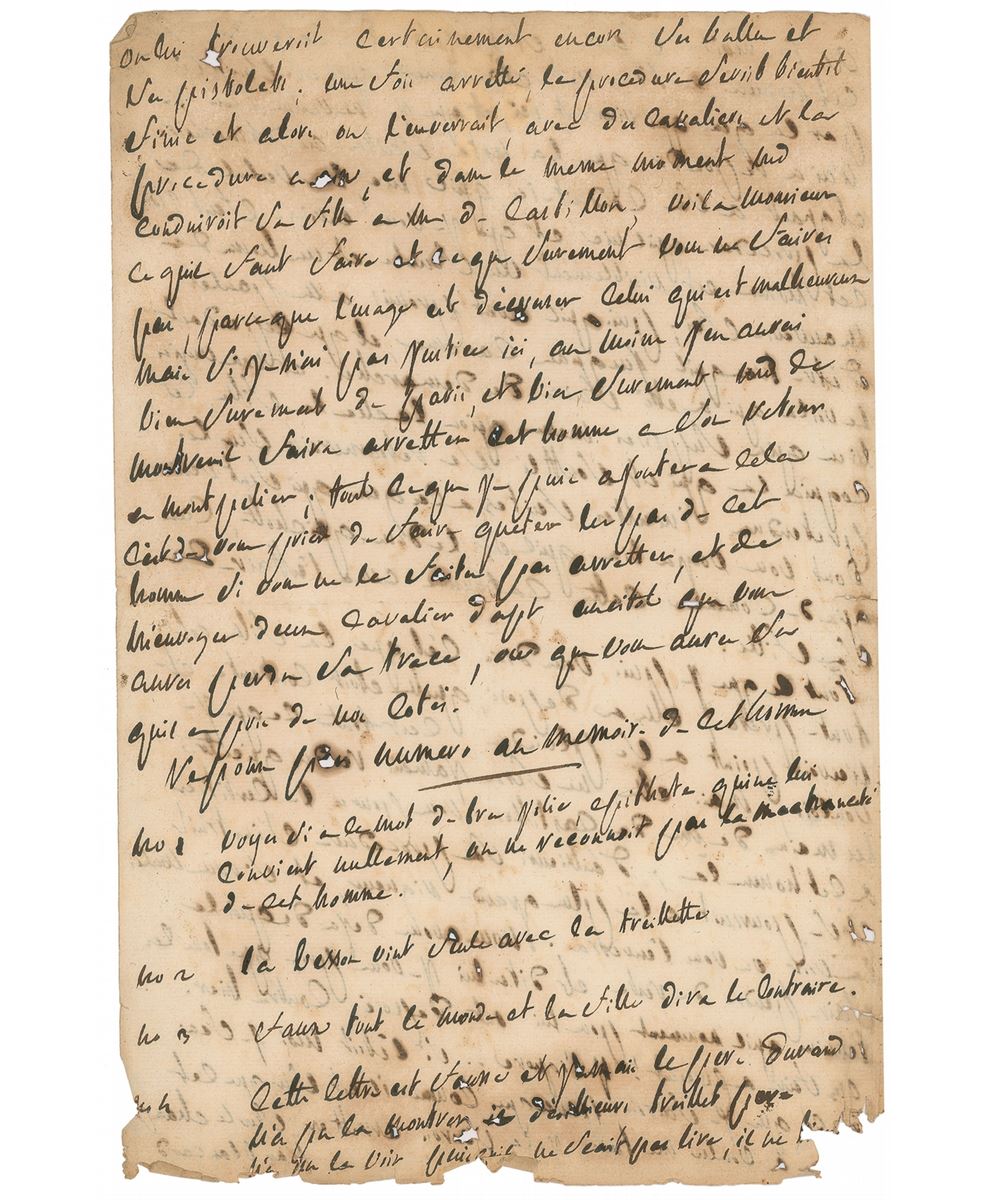 on lui trouveroit certainement encor des balles et
des pistolets, une fois arretté, la procedure serait bientot
finie et alors on l'enverrait avec des cavaliers et la
procedure a aix, et dans le meme moment md
conduiroit sa fille a mr de Castillon, voila monsieur
ce quil faut faire et ce que surement vous ne faires
pas, parce que l'usage est décraser celui qui est malheureux
mais si je n'ai pas justice ici, au moins j'en aurai
bien surement de paris, et bien surement md de
montreuil faira arretter cet homme a son retour
a montpelier; tout ce que je puis ajouter a cela
c'est de vous prier de faire guetter les pas de cet
homme si vous ne le faites pas arretter, et de
m'envoyer deux cavaliers d'apt aussitot que vous
aures perdu sa trace, ou que vous aures su
quil a pris de nos cotés.
Reponse par numero au memoire de cet homme
no 1 voyes s'i a le mot de tres plié, epithete qui ne lui
convient nullement, on ne reconnoit pas la mechanceté
de cet homme.
no 2 la besson vint seule avec la treillette
no 3 faux tout le monde et la fille dira le contraire.
no 4 cette lettre est fausse et jamais le pere durand
n'a pu la montrer et d'ailleurs treillet pere
n'a pu la voir puisque ne scait pas lire, il ne